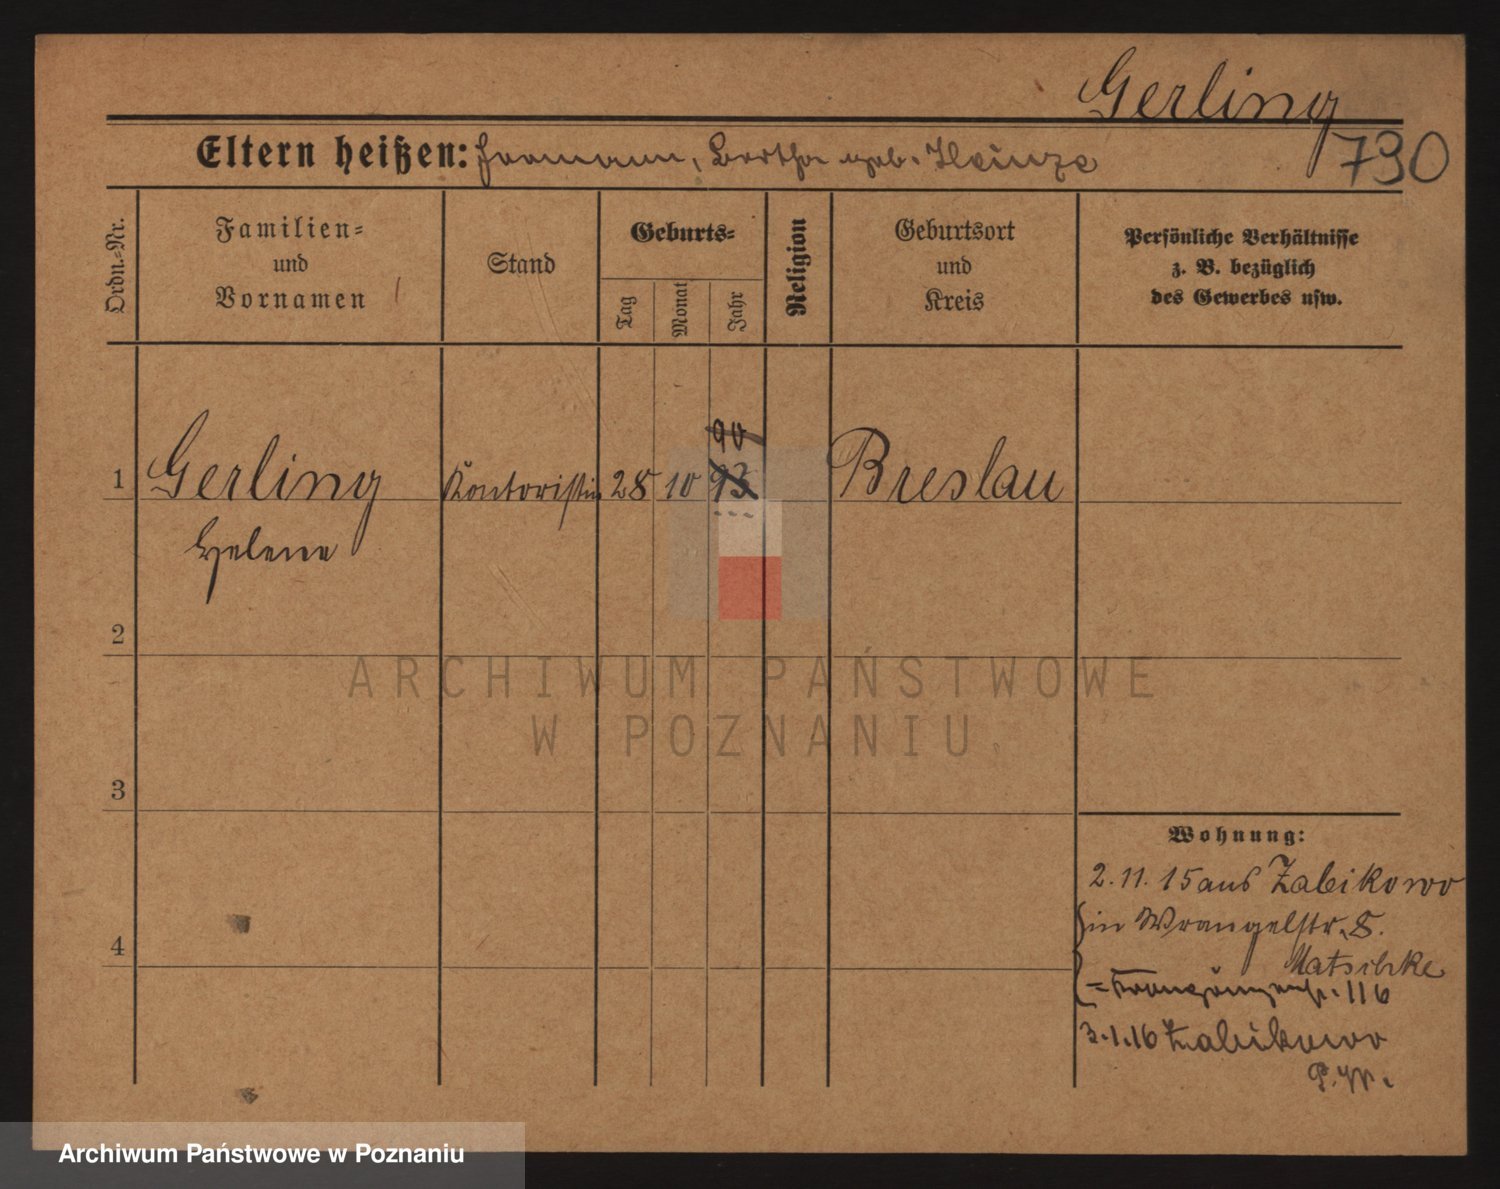 Gerling
790
Eltern heißen: Hermann, Bertha geb. Heinze
Ordn.-Nr.
Familien-
und
Vornamen
Stand
Geburts-
Tag
Monat
Jahr
Religion
Geburtsort
und
Kreis
Persönliche Verhältnisse
z. B. bezüglich
des Gewerbes usw.
90
1 Gerling Kontoristin 28 10 93 Breslau
Helene
2
ARCHIWUM PAŃSTWOWE
W POZNANIU
3
Wohnung:
2.11.15 aus Zabikowo
in Wrangelstr. 8.
4
=
116
3.1.16 Zabikowo
P.W.
Archiwum Państwowe w Poznaniu